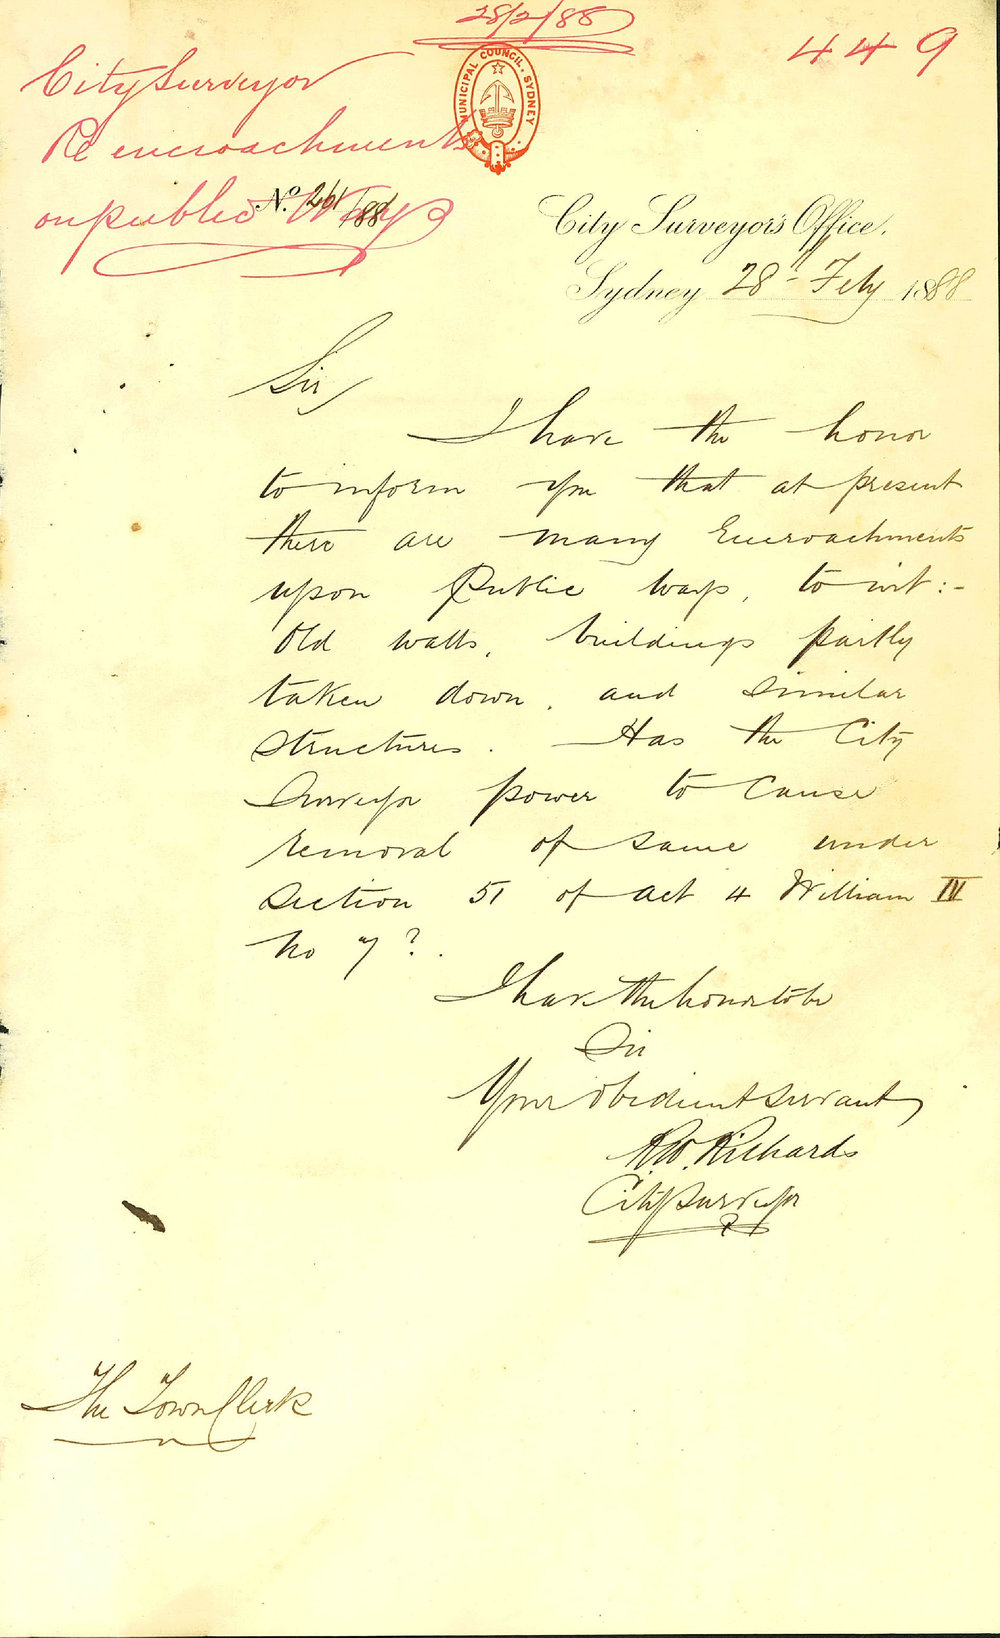 28/2/88
449
City Surveyor
Re encroachments
on public Ways
MUNICIPAL COUNCIL. SYDNEY
No. 261/88
City Surveyor's Office,
Sydney 28th Feby 1888
Sir
I have the honor
to inform you that at present
there are many Encroachments
upon Public ways, to wit:-
Old walls, buildings partly
taken down, and similar
structures. Has the City
Surveyor power to cause
removal of same under
section 51 of act 4 William IV
No 7?.
I have the honor to be
Sir
Your obedient servant,
R.W. Richards
City Surveyor
The Town Clerk